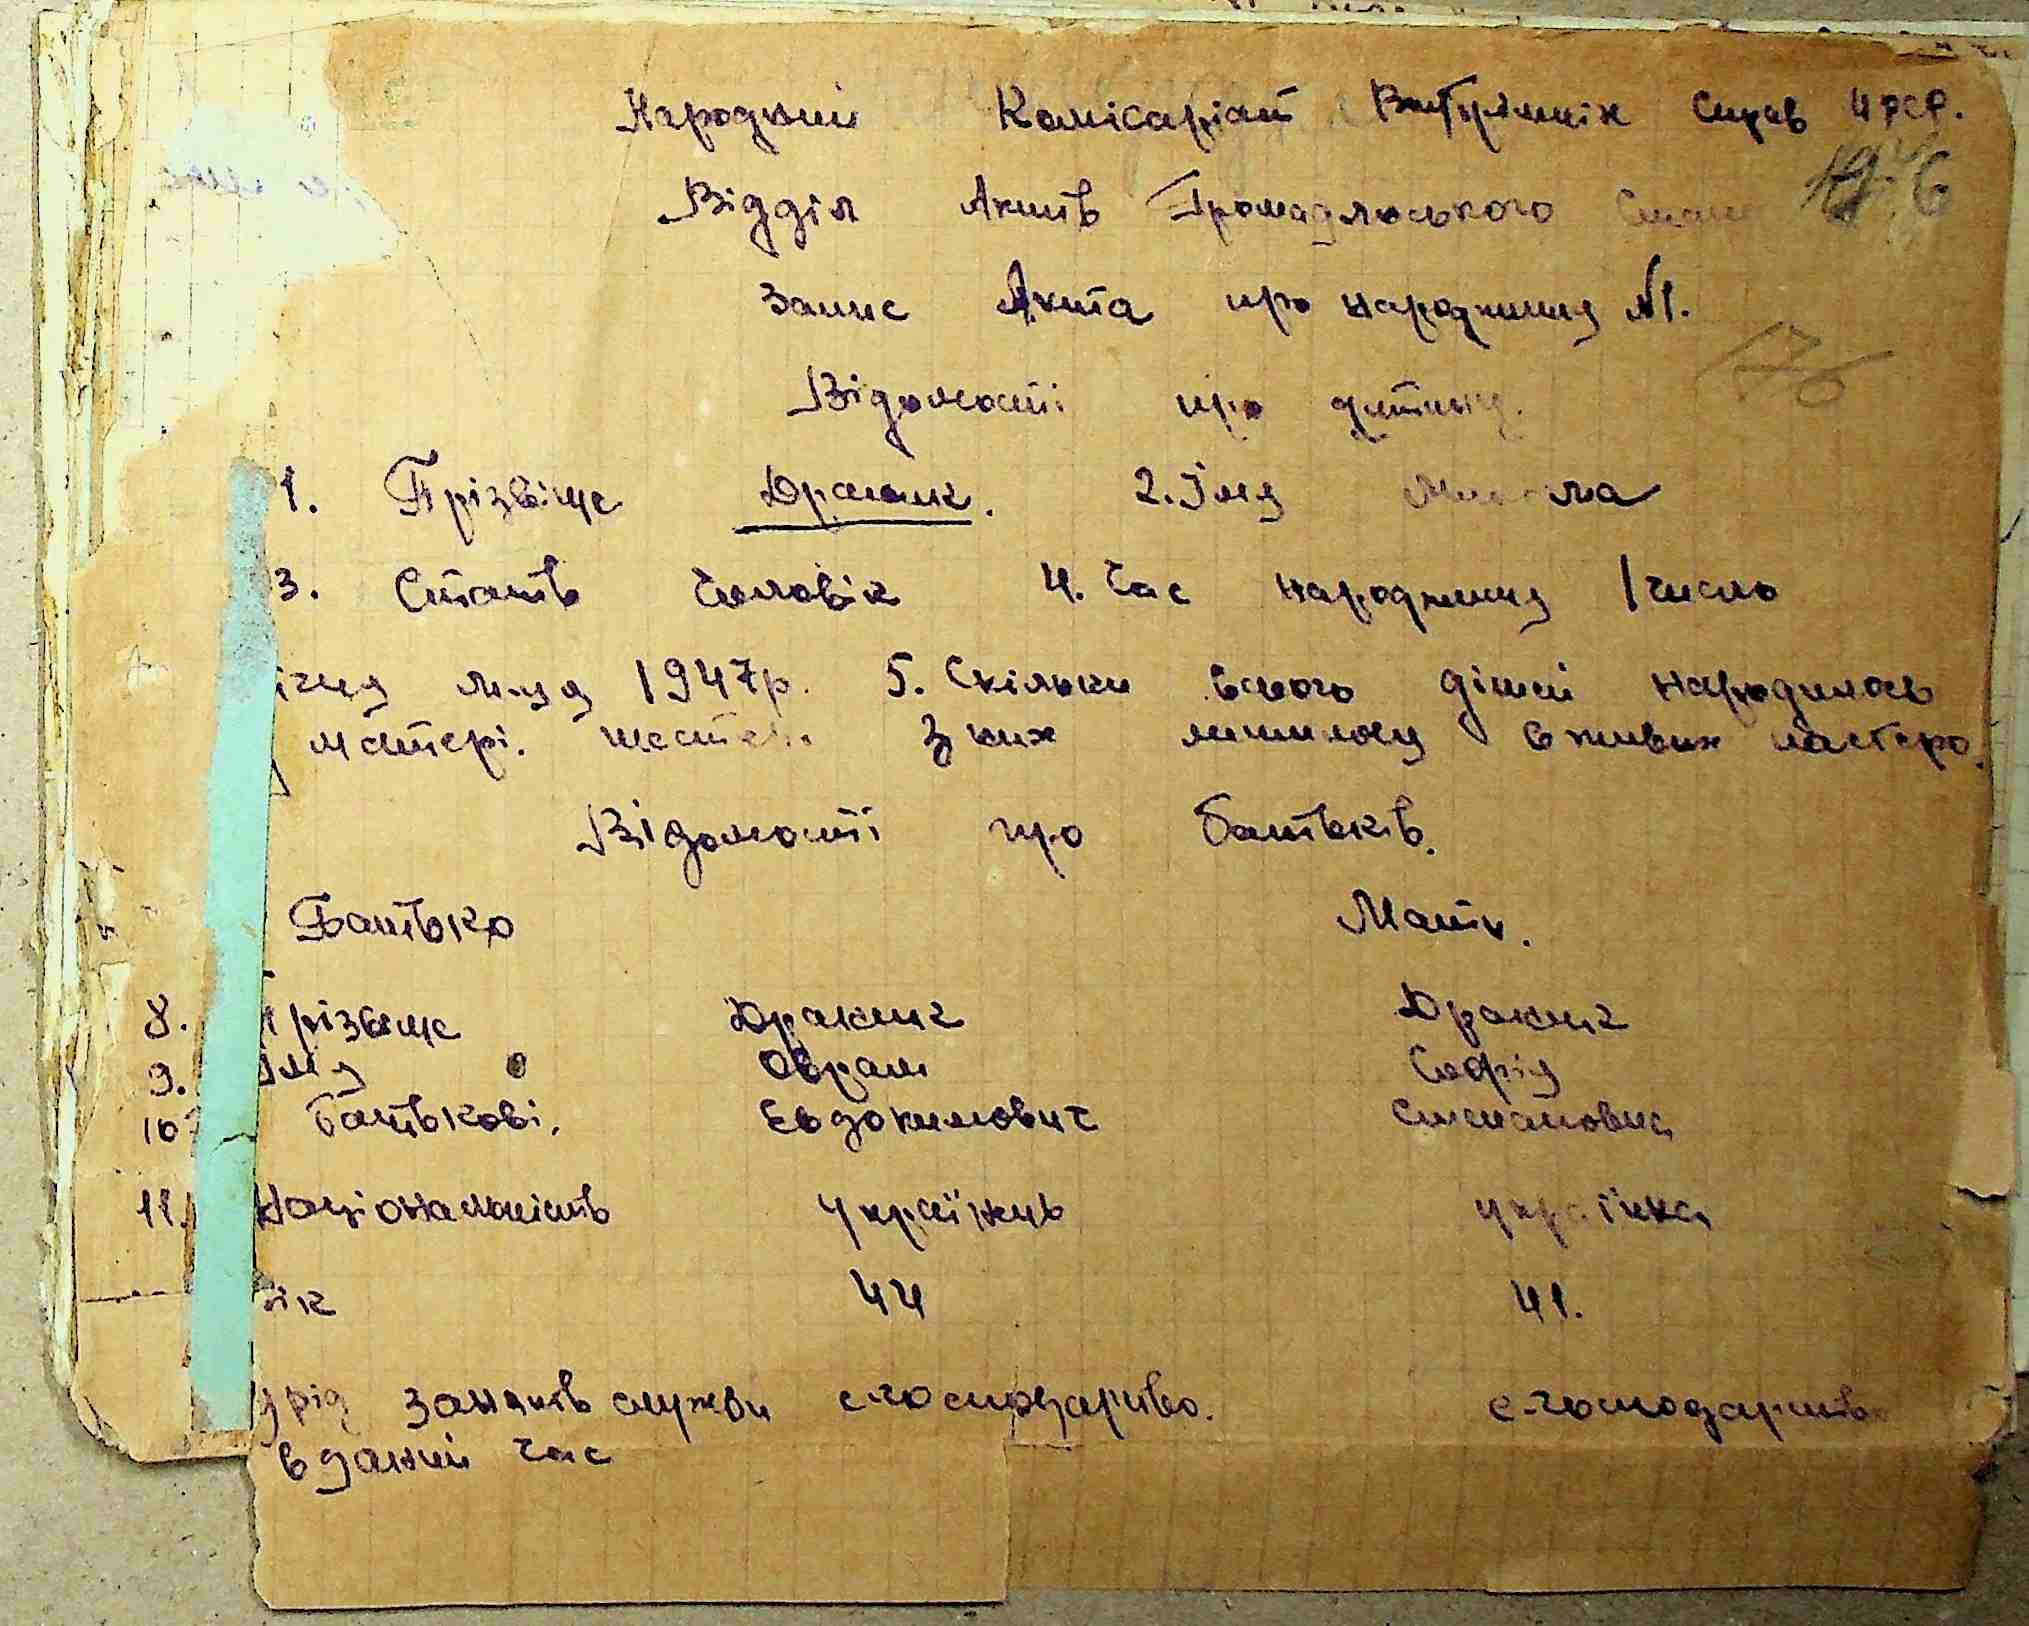 Народний Комісаріат Внутрішніх Справ УРСР.
Відділ Актів Громадянського Стану
Запис Акта про народження №1.
176
Відомості про дитину.
1. Прізвище 2. Імя
3. Стать Чоловік 4. Час народження 1 число
ічня м-ця 1947р. 5. Скільки всього дітей народилось
у матері. шестеро З них лишилося в живих
Відомості про батьків.
Батько Мати.
8. Прізвище Дракмк Дракмк
9. Імя Оврам Софія
10 Батькові. Евдокимович Степановна
11. Національність українець українка
вік 44 41.
рід занять служби с-господарство. с-господарство
в даний час